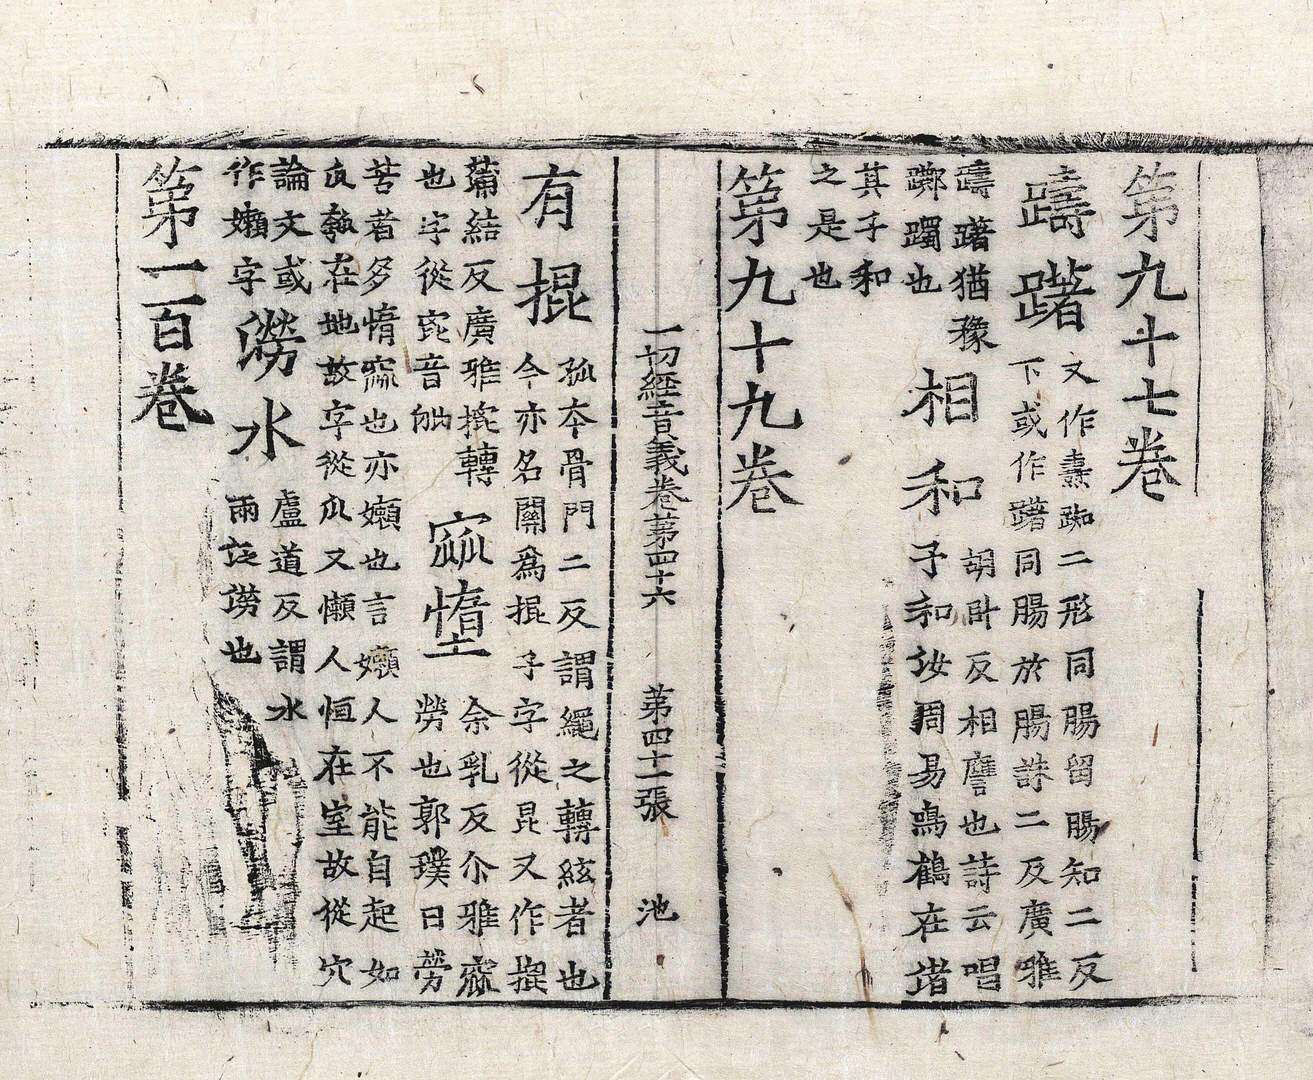 第九十七卷
躊躇
又作𧄍踟二形同腸留腸知二反
下或作躇同腸於腸誅二反廣雅
躊躇猶豫
躑躅也
相和
胡卧反相譍也詩云唱
子和汝周易鳴鶴在
其子和
之是也
第九十九卷
一切經音義卷第四十六 第四十一張 池
有掍
孤本骨門二反謂繩之轉絃者也
今亦名關爲掍子字從昆又作
結反廣雅轉
也字從音
窳惰
余乳反尒雅窳
勞也郭璞曰勞
苦者多惰窳也亦嬾也言嬾人不能自起如
瓜瓠在地故字從㼌又懶人恒在室故從穴
論文或
作嬾字
澇水
盧道反謂水
雨澇也
第一百卷